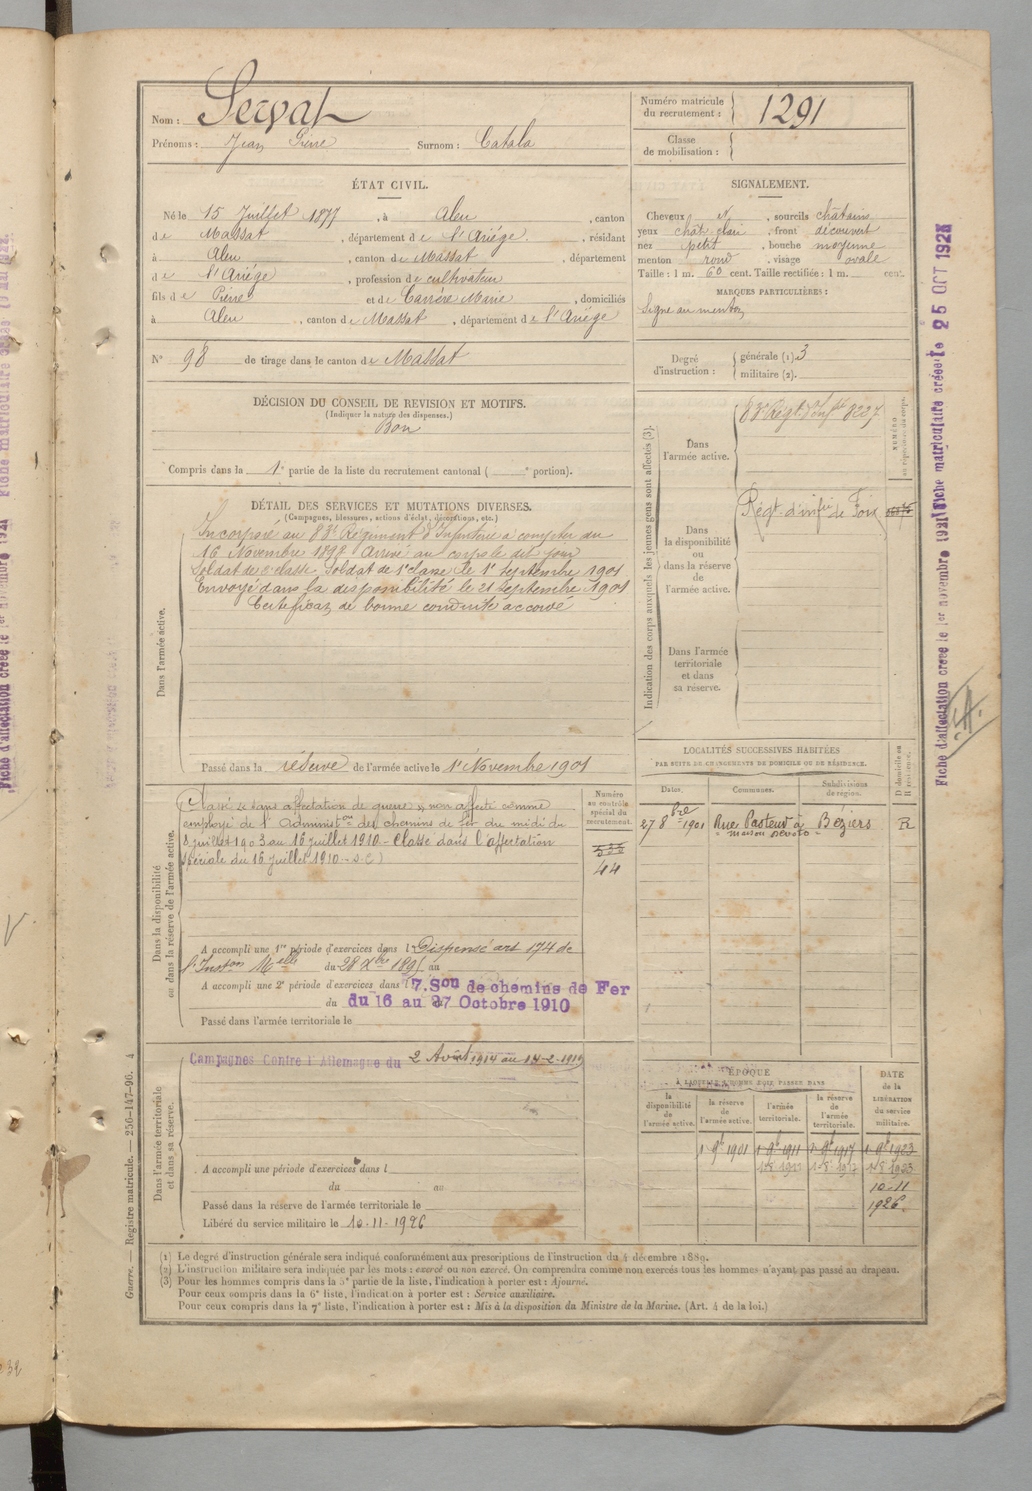 Nom : Servat
Prénoms : Jean Pierre Surnom : Catala
Numéro matricule du recrutement : 1291
Classe de mobilisation :
ÉTAT CIVIL.
Né le 15 Juillet 1877, à Aleu, canton
de Massat, département de l'Ariége, résidant
à Aleu, canton de Massat, département
de l'Ariége, profession de cultivateur
fils de Pierre et de Carrère Marie, domiciliés
à Aleu, canton de Massat, département de l'Ariége
SIGNALEMENT.
Cheveux et, sourcils châtains
yeux chât. clair, front découvert
nez petit, bouche moyenne
menton rond, visage ovale
Taille : 1 m. 60 cent. Taille rectifiée : 1 m. cent.
MARQUES PARTICULIÈRES :
Signe au menton
N° 98 de tirage dans le canton de Massat
Degré d'instruction : générale (1) 3
militaire (2).
DÉCISION DU CONSEIL DE REVISION ET MOTIFS.
(Indiquer la nature des dispenses.)
Bon
Compris dans la 1e partie de la liste du recrutement cantonal ( e portion).
DÉTAIL DES SERVICES ET MUTATIONS DIVERSES.
(Campagnes, blessures, actions d'éclat, décorations, etc.)
Dans l'armée active.
Incorporé au 83e Régiment d'Infanterie à compter du
16 Novembre 1898 Arrivé au corps le dit jour
Soldat de 2e classe Soldat de 1e classe le 1er Septembre 1901
Envoyé dans la disponibilité le 21 Septembre 1901
Certificat de bonne conduite accordé
Passé dans la réserve de l'armée active le 1er Novembre 1901
Indication des corps auxquels les jeunes gens sont affectés (3).
Dans l'armée active.
83e Régt d'Infie 8227
NUMÉRO au répertoire du corps.
Dans la disponibilité ou dans la réserve de l'armée active.
Régt d'infie de Foix
Dans l'armée territoriale et dans sa réserve.
LOCALITÉS SUCCESSIVES HABITÉES
PAR SUITE DE CHANGEMENTS DE DOMICILE OU DE RÉSIDENCE.
Dates. Communes. Subdivisions de région. D domicile ou R résidence.
27 8bre 1901 Rue Pasteur à Béziers R
maison
Dans la disponibilité ou dans la réserve de l'armée active.
Numéro au contrôle spécial du recrutement.
44
Classé dans affectation de guerre & non affecté comme
employé de l'Administon des chemins de fer du midi du
8 juillet 1903 au 16 juillet 1910 - Classé dans l'affectation
spéciale du 16 Juillet 1910 -
A accompli une 1re période d'exercices dans l Dispensé art 174 de
l'Inston Melle du 28 Xbre 1895 au
A accompli une 2e période d'exercices dans l 7. Son de chemins de Fer
du 16 au 27 Octobre 1910
Passé dans l'armée territoriale le
Dans l'armée territoriale et dans sa réserve.
Campagnes Contre l'Allemagne du 2 Août 1914 au 14-2-1919
A accompli une période d'exercices dans l
du au
Passé dans la réserve de l'armée territoriale le
Libéré du service militaire le 10-11-1926
ÉPOQUE
À LAQUELLE L'HOMME DOIT PASSER DANS
la disponibilité de l'armée active. la réserve de l'armée active. l'armée territoriale. la réserve de l'armée territoriale. DATE de la LIBÉRATION du service militaire.
1 9bre 1901 1 9bre 1911 1 9bre 1917 1 9bre 1923
10-11
1926
(1) Le degré d'instruction générale sera indiqué conformément aux prescriptions de l'instruction du 4 décembre 1889.
(2) L'instruction militaire sera indiquée par les mots : exercé ou non exercé. On comprendra comme non exercés tous les hommes n'ayant pas passé au drapeau.
(3) Pour les hommes compris dans la 5e partie de la liste, l'indication à porter est : Ajourné.
Pour ceux compris dans la 6e liste, l'indication à porter est : Service auxiliaire.
Pour ceux compris dans la 7e liste, l'indication à porter est : Mis à la disposition du Ministre de la Marine. (Art. 4 de la loi.)
Guerre. — Registre matricule. — 256-147-96. 4
Fiche d'affectation créée le 1er novembre 1921
Fiche matriculaire créée le 25 OCT 1928